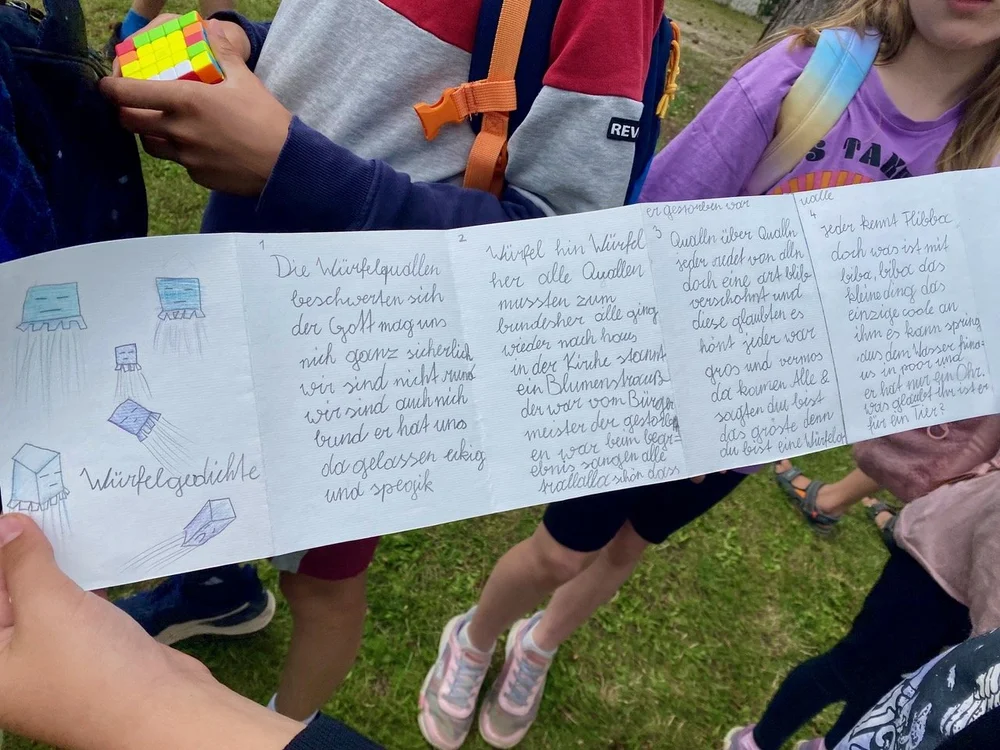 REV
S TAK
Würfelgedichte
1
Die Würfelquallen
beschwerten sich
der Gott mag uns
nich ganz sicherlich
wir sind nicht rund
wir sind auch nich
bund er hat uns
da gelassen eckig
und speqik
2
Würfel hin Würfel
her alle Quallen
mussten zum
bundesher alle ging
wieder nach haus
in der Kirche stannt
ein Blumenstrauß
der war vom Bürger
meister der gestorb
en war beim begr=
ebnis sangen alle
trallalla schön dass
er gestorben war
3
Qualln über Qualln
jeder redet von alln
doch eine art blib
verschohnt und
diese glaubten es
hönt jeder war
gros und vermos
da kamen Alle &
sagten du bist
das gröste denn
du bist eine Würfelq
ualle
4
jeder kennt Flibba
doch was ist mit
biba, biba das
kleine ding das
einzige coole an
ihm es kann spring
aus dem Wasser hina=
us in poor und
er hat nur ein Ohr.
was glaubt ihr ist er
für ein Tier?